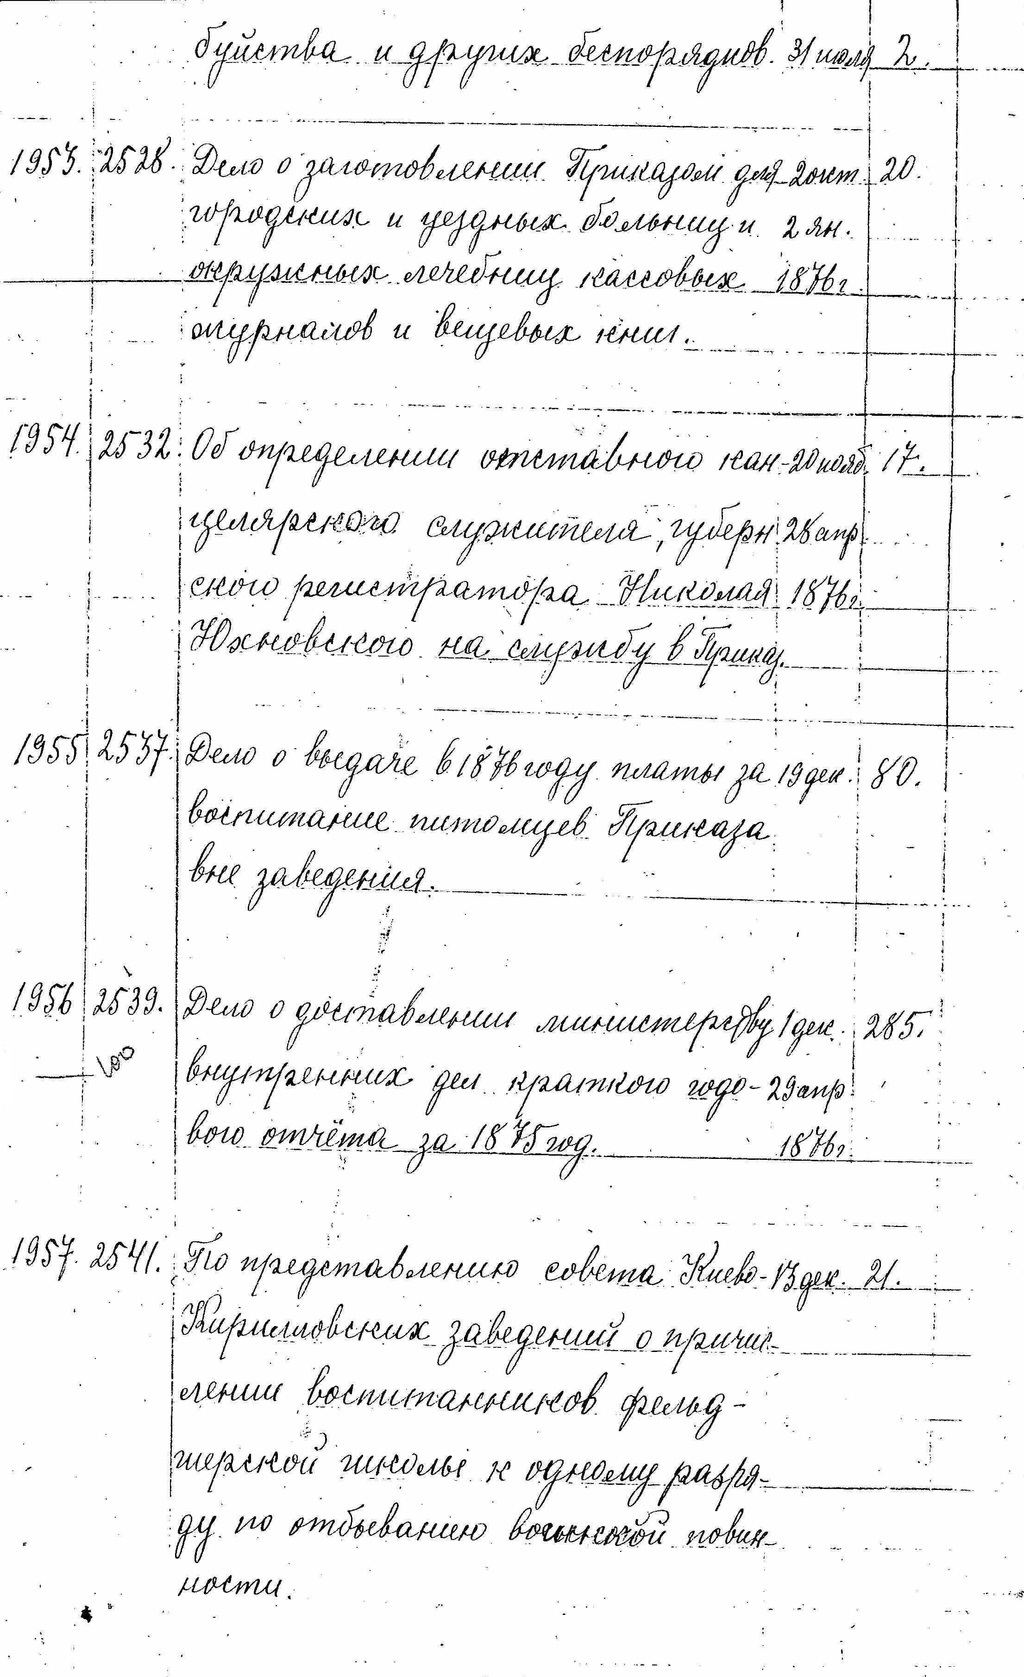 буйства и других беспорядков. 31 июля 2.
1953. 2528. Дело о заготовлении Приказом для 2 окт. 20.
городских и уездных больниц и 2 ян.
окружных лечебниц кассовых 1876 г.
журналов и вещевых книг.
1954. 2532. Об определении отставного кан- 20 нояб. 17.
целярского служителя, губерн 28 апр
ского регистратора Николая 1876 г.
Юхновского на службу в Приказ.
1955 2537. Дело о выдаче в 1876 году платы за 19 дек. 80.
воспитание питомцев Приказа
вне заведения.
1956 2539. Дело о доставлении министерству 1 дек. 285.
100 внутренних дел краткого годо- 29 апр
вого отчёта за 1875 год. 1876 г.
1957. 2541. По представлению совета Киево- 13 дек. 21.
Кирилловских заведений о причис-
лении воспитанников фельд-
шерской школы к одному разря-
ду по отбыванию воинской повин-
ности.